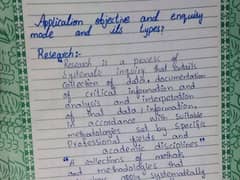 Application objective and enquiry
mode and its types?
Research:-
Research is a process of
Systematic inquiry that entails
collection of data, documentation
of critical information and
analysis and interpretation
of that data / information,
in accordance with suitable
methodologies set by specific
Professional fields and
academic disciplines"
"A collections of methods
and methodologies that
systematically